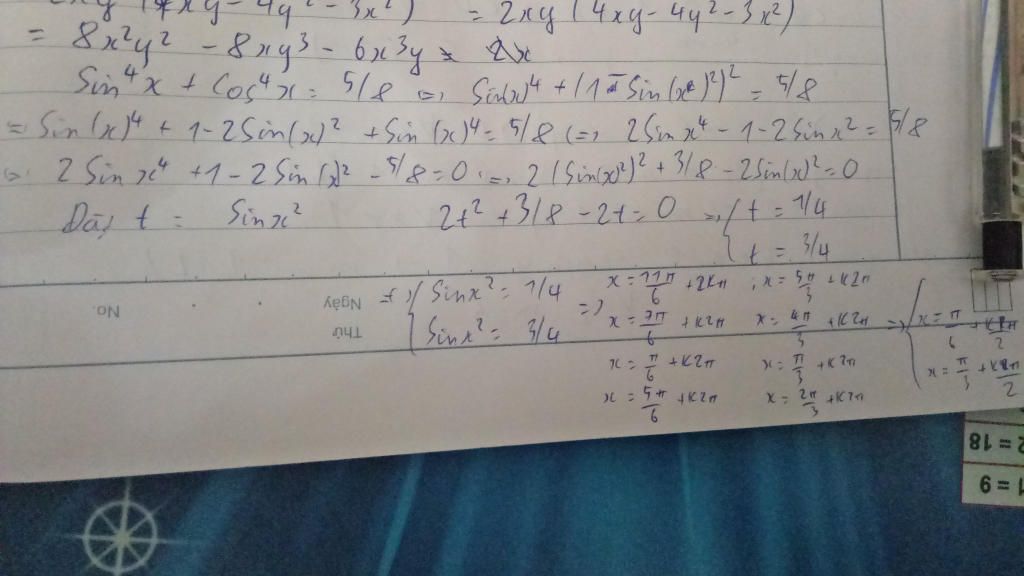 xy - 4y² - 3x² ) = 2xy ( 4xy - 4y² - 3x² )
= 8x²y² - 8xy³ - 6x³y
Sin⁴x + Cos⁴x = 5/8 <=> Sin(x)⁴ + (1 - Sin(x)²)² = 5/8
= Sin(x)⁴ + 1 - 2Sin(x)² + Sin(x)⁴ = 5/8 <=> 2Sinx⁴ - 1 - 2Sinx² = 5/8
<=> 2Sinx⁴ + 1 - 2Sin(x)² - 5/8 = 0 <=> 2(Sin(x)²)² + 3/8 - 2Sin(x)² = 0
Đặt t = Sinx² 2t² + 3/8 - 2t = 0 => { t = 1/4
t = 3/4
=> { Sinx² = 1/4
Sinx² = 3/4
=> x = 11π/6 + 2kπ , x = 5π/3 + k2π
x = 7π/6 + k2π x = 4π/3 + k2π
x = π/6 + k2π x = π/3 + k2π
x = 5π/6 + k2π x = 2π/3 + k2π
=> { x = π/6 + kπ/2
x = π/3 + kπ/2
No.
Ngày
Thứ
2 = 18
1 = 9